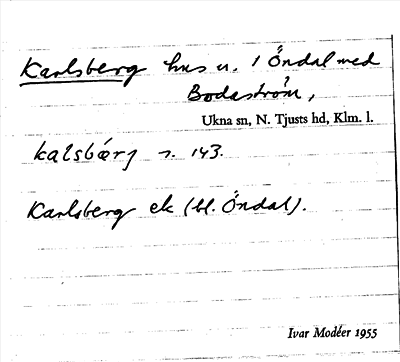 Karlsberg hus u. 1 Öndal med
Bodaström,
Ukna sn, N. Tjusts hd, Klm. l.
kalsbärj s. 143.
Karlsberg ek (bl. Öndal).
Ivar Modéer 1955